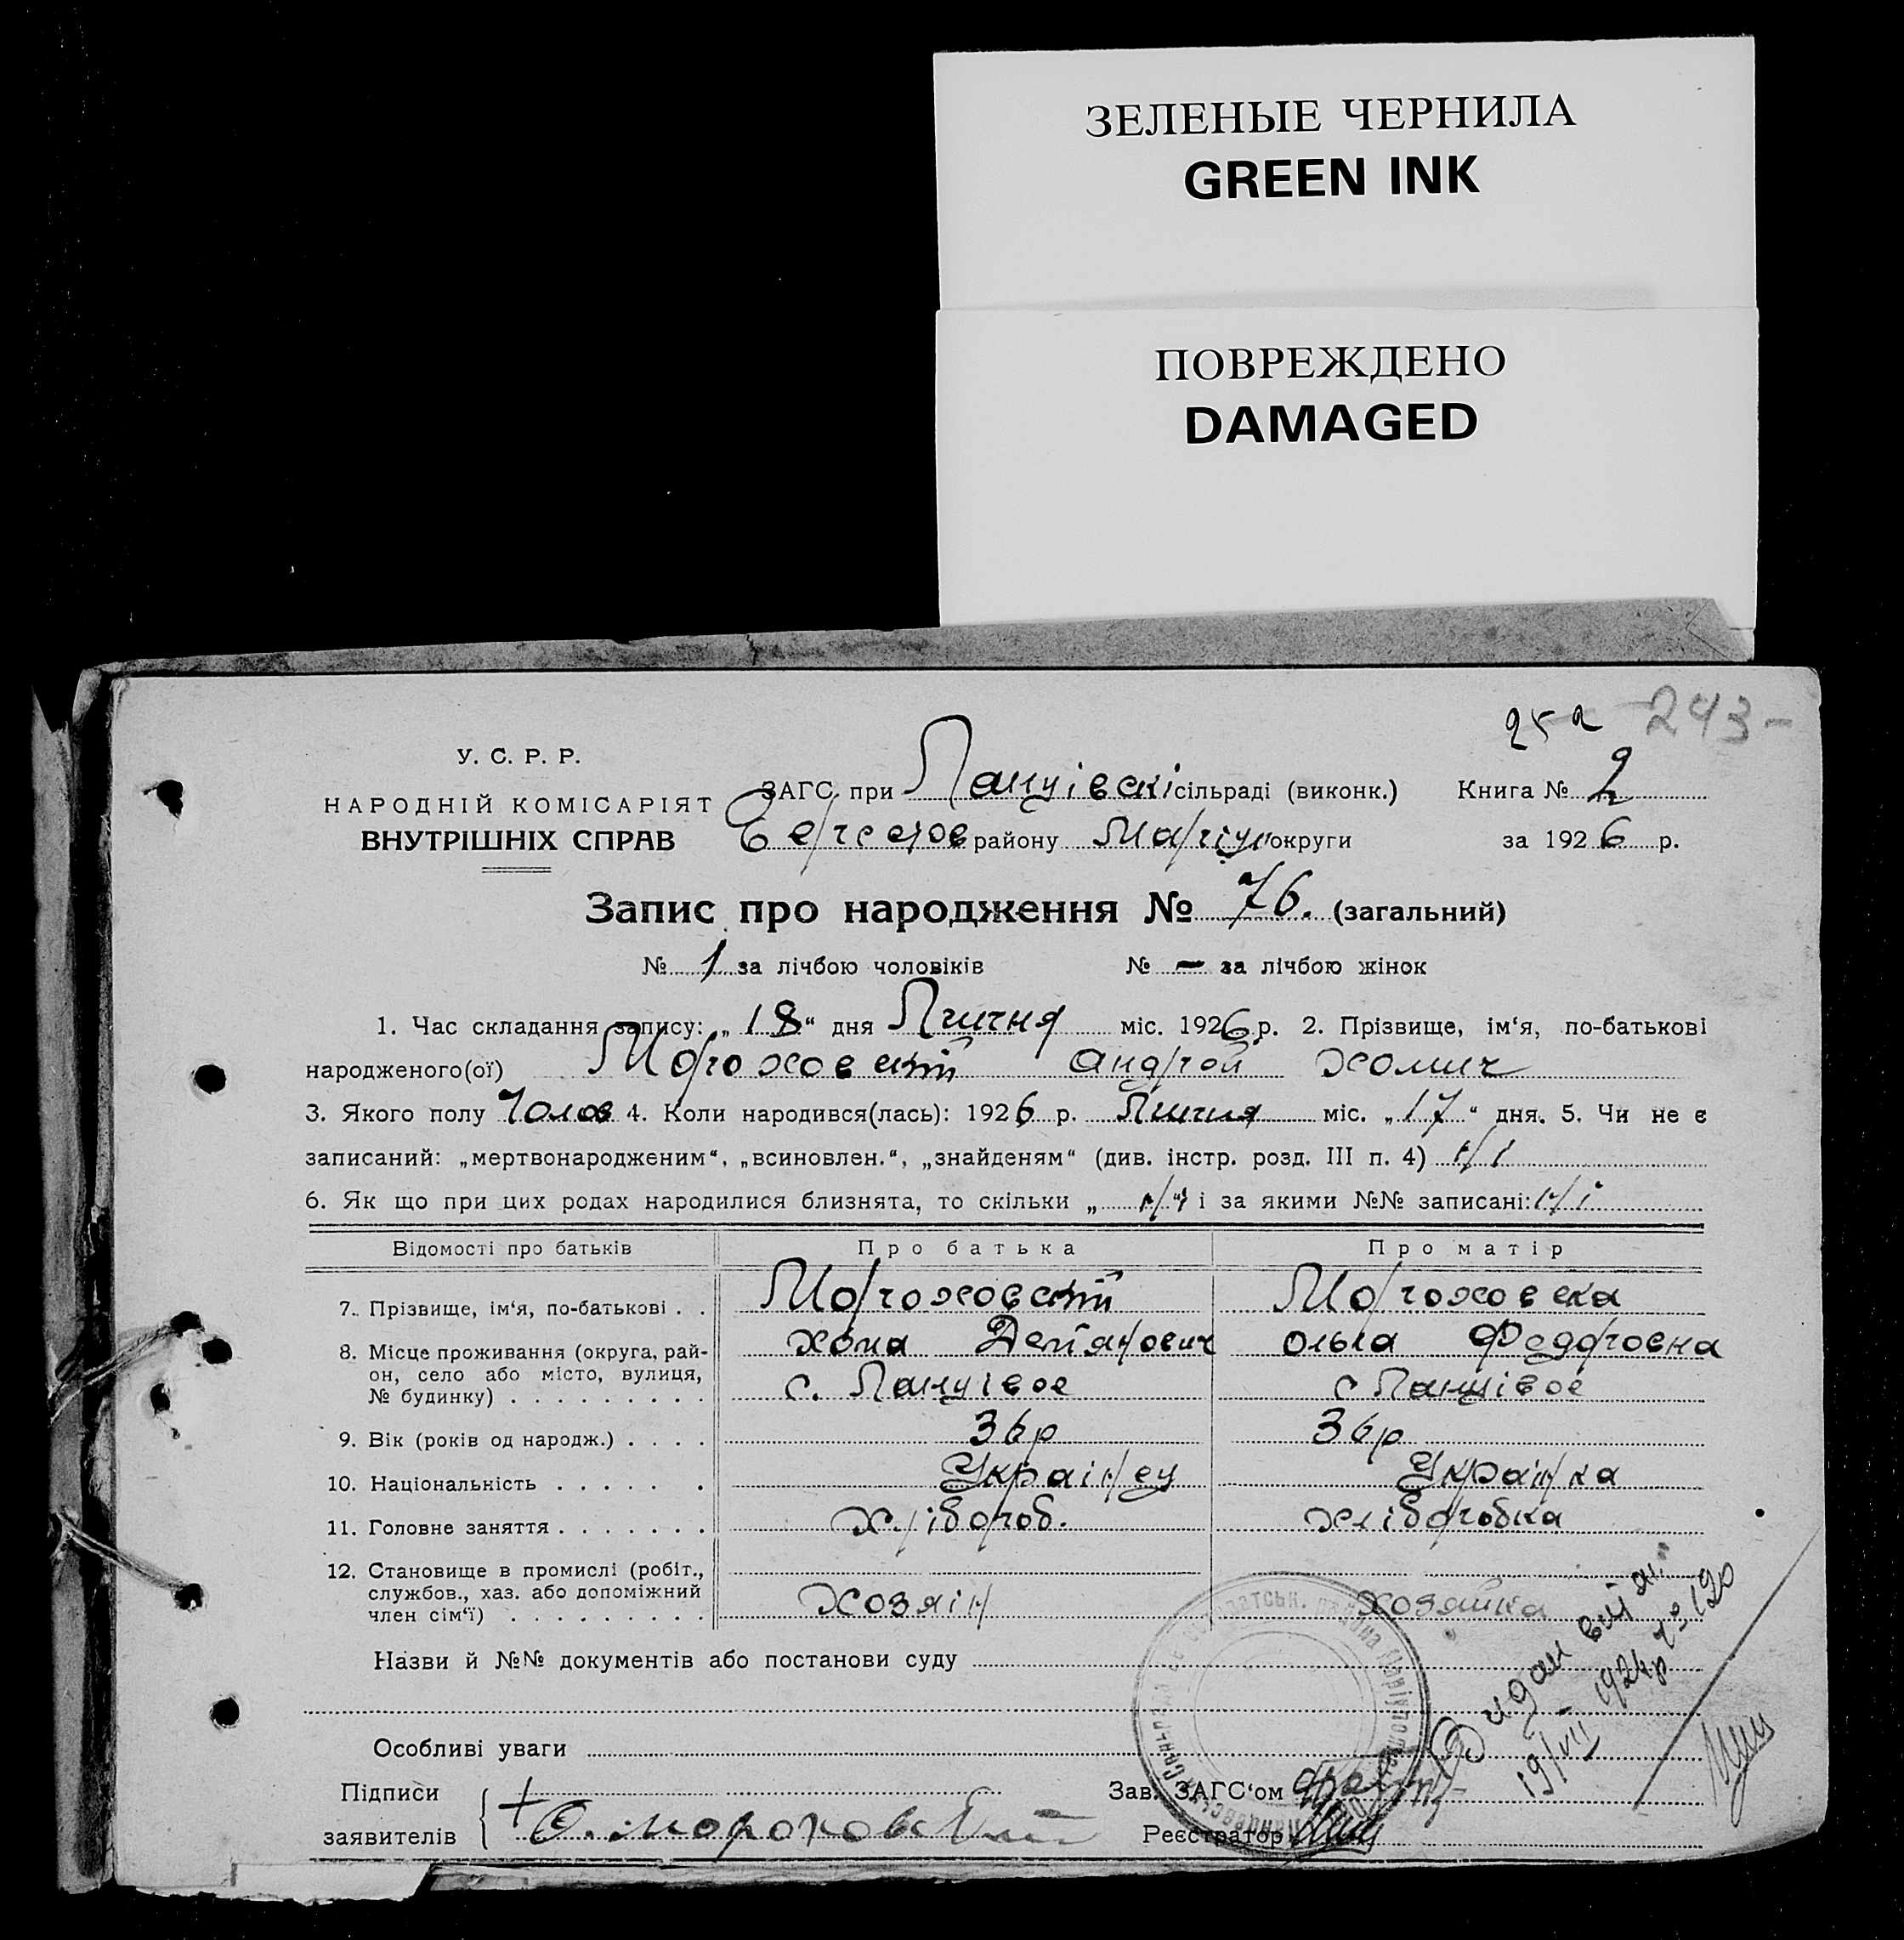 ЗЕЛЕНЫЕ ЧЕРНИЛА
GREEN INK
ПОВРЕЖДЕНО
DAMAGED
243-
У. С. Р. Р.
НАРОДНІЙ КОМІСАРІЯТ
ВНУТРІШНІХ СПРАВ
ЗАГС при Ланцівскі сільраді (виконк.) Книга № 2
району Маріуп округи за 1926 р.
Запис про народження № 76. (загальний)
№ 1 за лічбою чоловіків № – за лічбою жінок
1. Час складання запису: „18“ дня Липня міс. 1926 р. 2. Прізвище, ім‘я, по-батькові
народженого(ої) Морозовский Андрій Хомич
3. Якого полу Чолов 4. Коли народився(лась): 1926 р. Липня міс. „17“ дня. 5. Чи не є
записаний: „мертвонародженим“, „всиновлен.“, „знайденям“ (див. інстр. розд. III п. 4) ні
6. Як що при цих родах народилися близнята, то скільки „ні“ і за якими №№ записані: ні
Відомості про батьків Про батька Про матір
7. Прізвище, ім‘я, по-батькові . . Мороховский Мороховска
Хома Демянович Ольга Федоровна
8. Місце проживання (округа, рай-
он, село або місто, вулиця,
№ будинку) . . . . . . . . . с. Ланцівое с Ланцівое
9. Вік (років од народж.) . . . . 36р 36р
10. Національність . . . . . . Українец Українка
11. Головне заняття . . . . . . . Хлібороб. Хліборобка
12. Становище в промислі (робіт.,
службов., хаз. або допоміжний
член сім‘ї) . . . . . . . . . Хозяін Хозяйка
Назви й №№ документів або постанови суду
Видан
19/VII
Особливі уваги
Підписи
заявителів + О. Мороховский
Зав. ЗАГС‘ом
Реєстратор